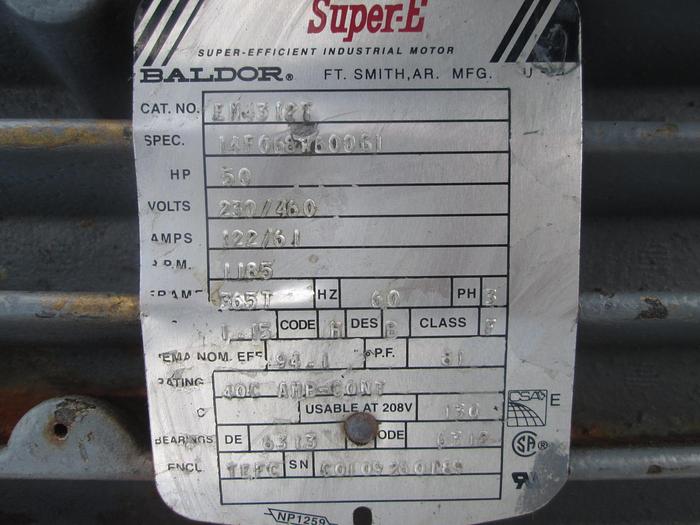 Super-E
SUPER-EFFICIENT INDUSTRIAL MOTOR
BALDOR® FT. SMITH, AR. MFG. U
CAT. NO. EM4312T
SPEC.
HP 50
VOLTS 230/460
AMPS 122/61
R.P.M. 1185
FRAME 365T HZ 60 PH 3
1.15 CODE H DES B CLASS F
NEMA NOM. EFF. 94.1 P.F. 81
RATING 40C AMB-CONT
C USABLE AT 208V 130
BEARINGS DE 6313 ODE
ENCL TEFC SN
CSA E
SA ®
NP1259